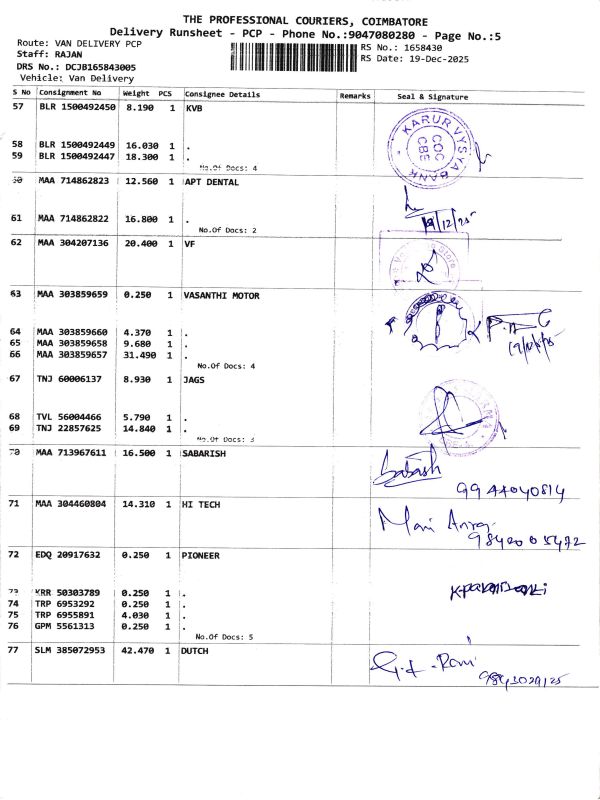 THE PROFESSIONAL COURIERS, COIMBATORE
Delivery Runsheet - PCP - Phone No.:9047080280 - Page No.:5
Route: VAN DELIVERY PCP
Staff: RAJAN
DRS No.: DCJB165843005
Vehicle: Van Delivery
RS No.: 1658430
RS Date: 19-Dec-2025
S No Consignment No Weight PCS Consignee Details Remarks Seal & Signature
57 BLR 1500492450 8.190 1 KVB
KARUR VYSYA BANK
COC
CBE
58 BLR 1500492449 16.030 1 .
59 BLR 1500492447 18.300 1 .
No.Of Docs: 4
60 MAA 714862823 12.560 1 APT DENTAL
61 MAA 714862822 16.800 1 .
19/12/25
No.Of Docs: 2
62 MAA 304207136 20.400 1 VF
63 MAA 303859659 0.250 1 VASANTHI MOTOR
64 MAA 303859660 4.370 1 .
65 MAA 303859658 9.680 1 .
66 MAA 303859657 31.490 1 .
No.Of Docs: 4
67 TNJ 60006137 8.930 1 JAGS
68 TVL 56004466 5.790 1 .
69 TNJ 22857625 14.840 1 .
No.Of Docs: 3
70 MAA 713967611 16.500 1 SABARISH
71 MAA 304460804 14.310 1 HI TECH
Mani
72 EDQ 20917632 0.250 1 PIONEER
73 KRR 50303789 0.250 1 .
74 TRP 6953292 0.250 1 .
75 TRP 6955891 4.030 1 .
76 GPM 5561313 0.250 1 .
No.Of Docs: 5
77 SLM 385072953 42.470 1 DUTCH